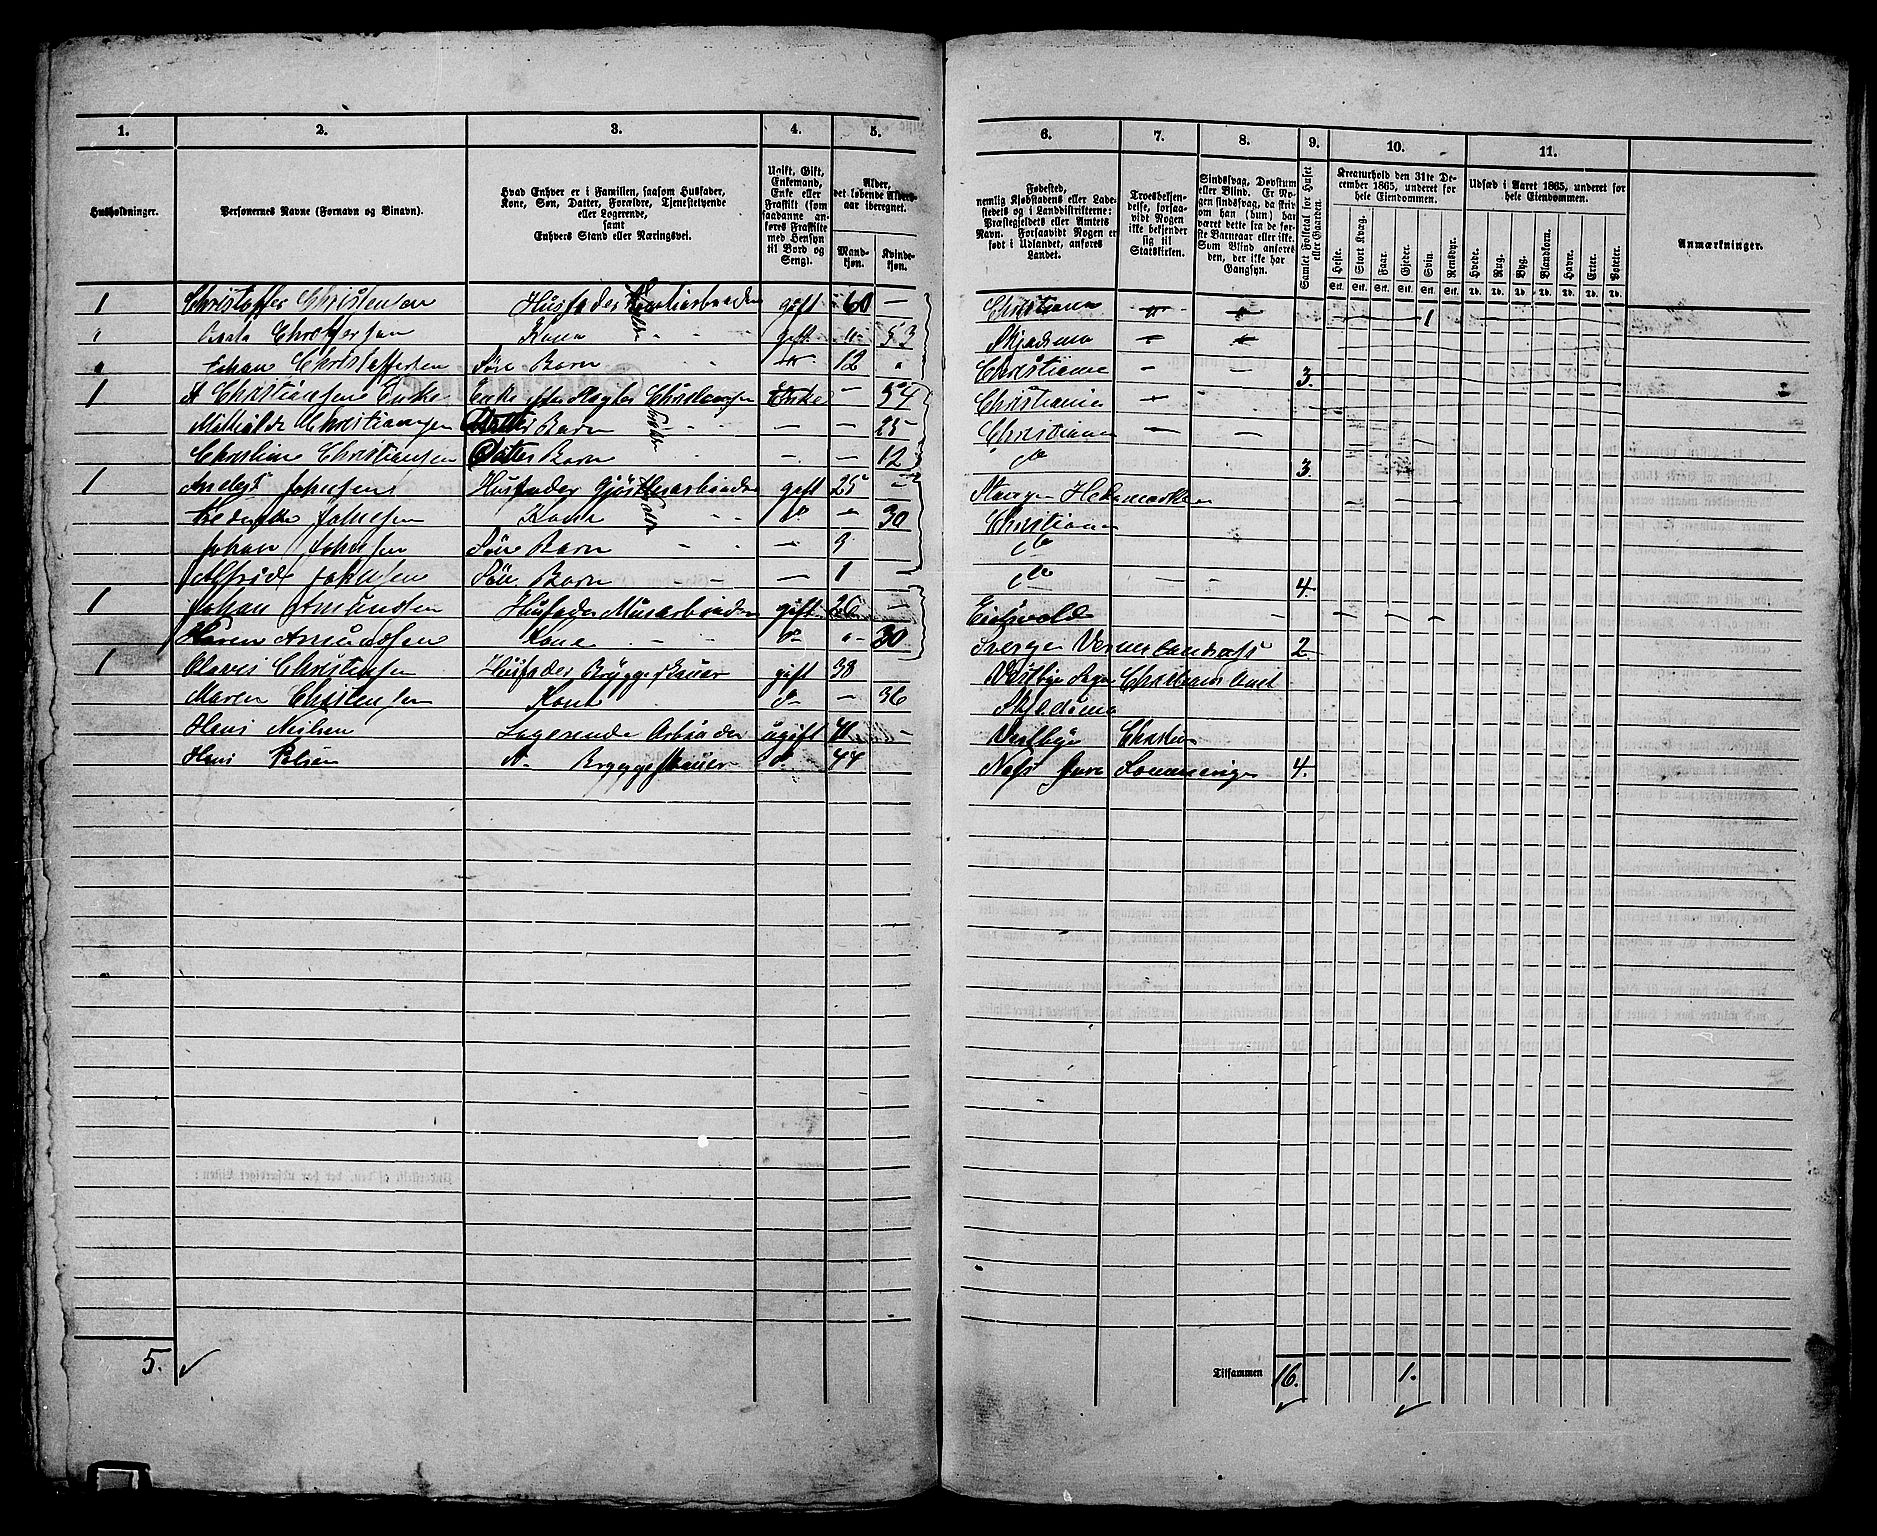 1. 2. 3. 4. 5. 6. 7. 8. 9. 10. 11.
Husholdninger.
Personernes Navne (Fornavn og Binavn).
Hvad Enhver er i Familien, saasom Husfader, Kone, Søn, Datter, Forældre, Tjenestetyende eller Logerende, samt Enhvers Stand eller Næringsvei.
Ugift, Gift, Enkemand, Enke eller Fraskilt (som saadanne anføres Fraskilte med Hensyn til Bord og Seng).
Alder, det løbende Aldersaar iberegnet.
Mandkjøn. Kvindekjøn.
Fødested, nemlig Kjøbstadens eller Ladestedets og i Landdistrikterne: Præstegjeldets eller Amtets Navn. Forsaavidt Nogen er født i Udlandet, anføres Landet.
Troesbekjendelse, forsaavidt Nogen ikke bekjender sig til Statskirken.
Sindssvag, Døvstum eller Blind. Er Nogen sindssvag, da skrives om han (hun) har været dette fra de første Barneaar eller ikke. Som Blind anføres den, der ikke har Gangsyn.
Samlet Folketal for Huset eller Gaarden.
Kreaturhold den 31te December 1865, underet for hele Eiendommen.
Heste. Stort Kvæg. Faar. Gjeder. Svin. Rensdyr.
Stk. Stk. Stk. Stk. Stk. Stk.
Udsæd i Aaret 1865, underet for hele Eiendommen.
Hvede. Rug. Byg. Blandkorn. Havre. Erter. Poteter.
Td. Td. Td. Td. Td. Td. Td.
Anmærkninger.
1 Christoffer Christensen Husfader gift 60 — Christiania 1
" Christofersen Kone gift " 53 Skjedsmo
" Johan Christoffersen Søn Barn 12 " Christiania 3.
1 Christiansen Enke Enke efter Christiansen Enke — 54 Christiania
Mathilde Christiansen Datter Barn — — 25 Christiania
Christine Christiansen Datter Barn — — 12 do 3.
1 Anders Johnsen Husfader gift 25 — Stange Hedemarken
Johnsen Kone do — 30 Christiania
Johan Johnsen Søn Barn — 3 do
Alfride Johnsen Søn Barn — 1 do 4.
1 Johan Amundsen Husfader Murarbeider gift 26 Eidsvold
Karen Amundsen Kone do " 30 Sverge 2
1 Olaves Christensen Husfader Bryggeskauer gift 38 Vestbye
Maren Christensen Kone do — 36 Skjedsmo
Hans Nielsen Logerende Arbeider ugift 41 — Vestbye
Hans Bryggeskauer do 44 Næs 4.
5. Tilsammen 16. 1.